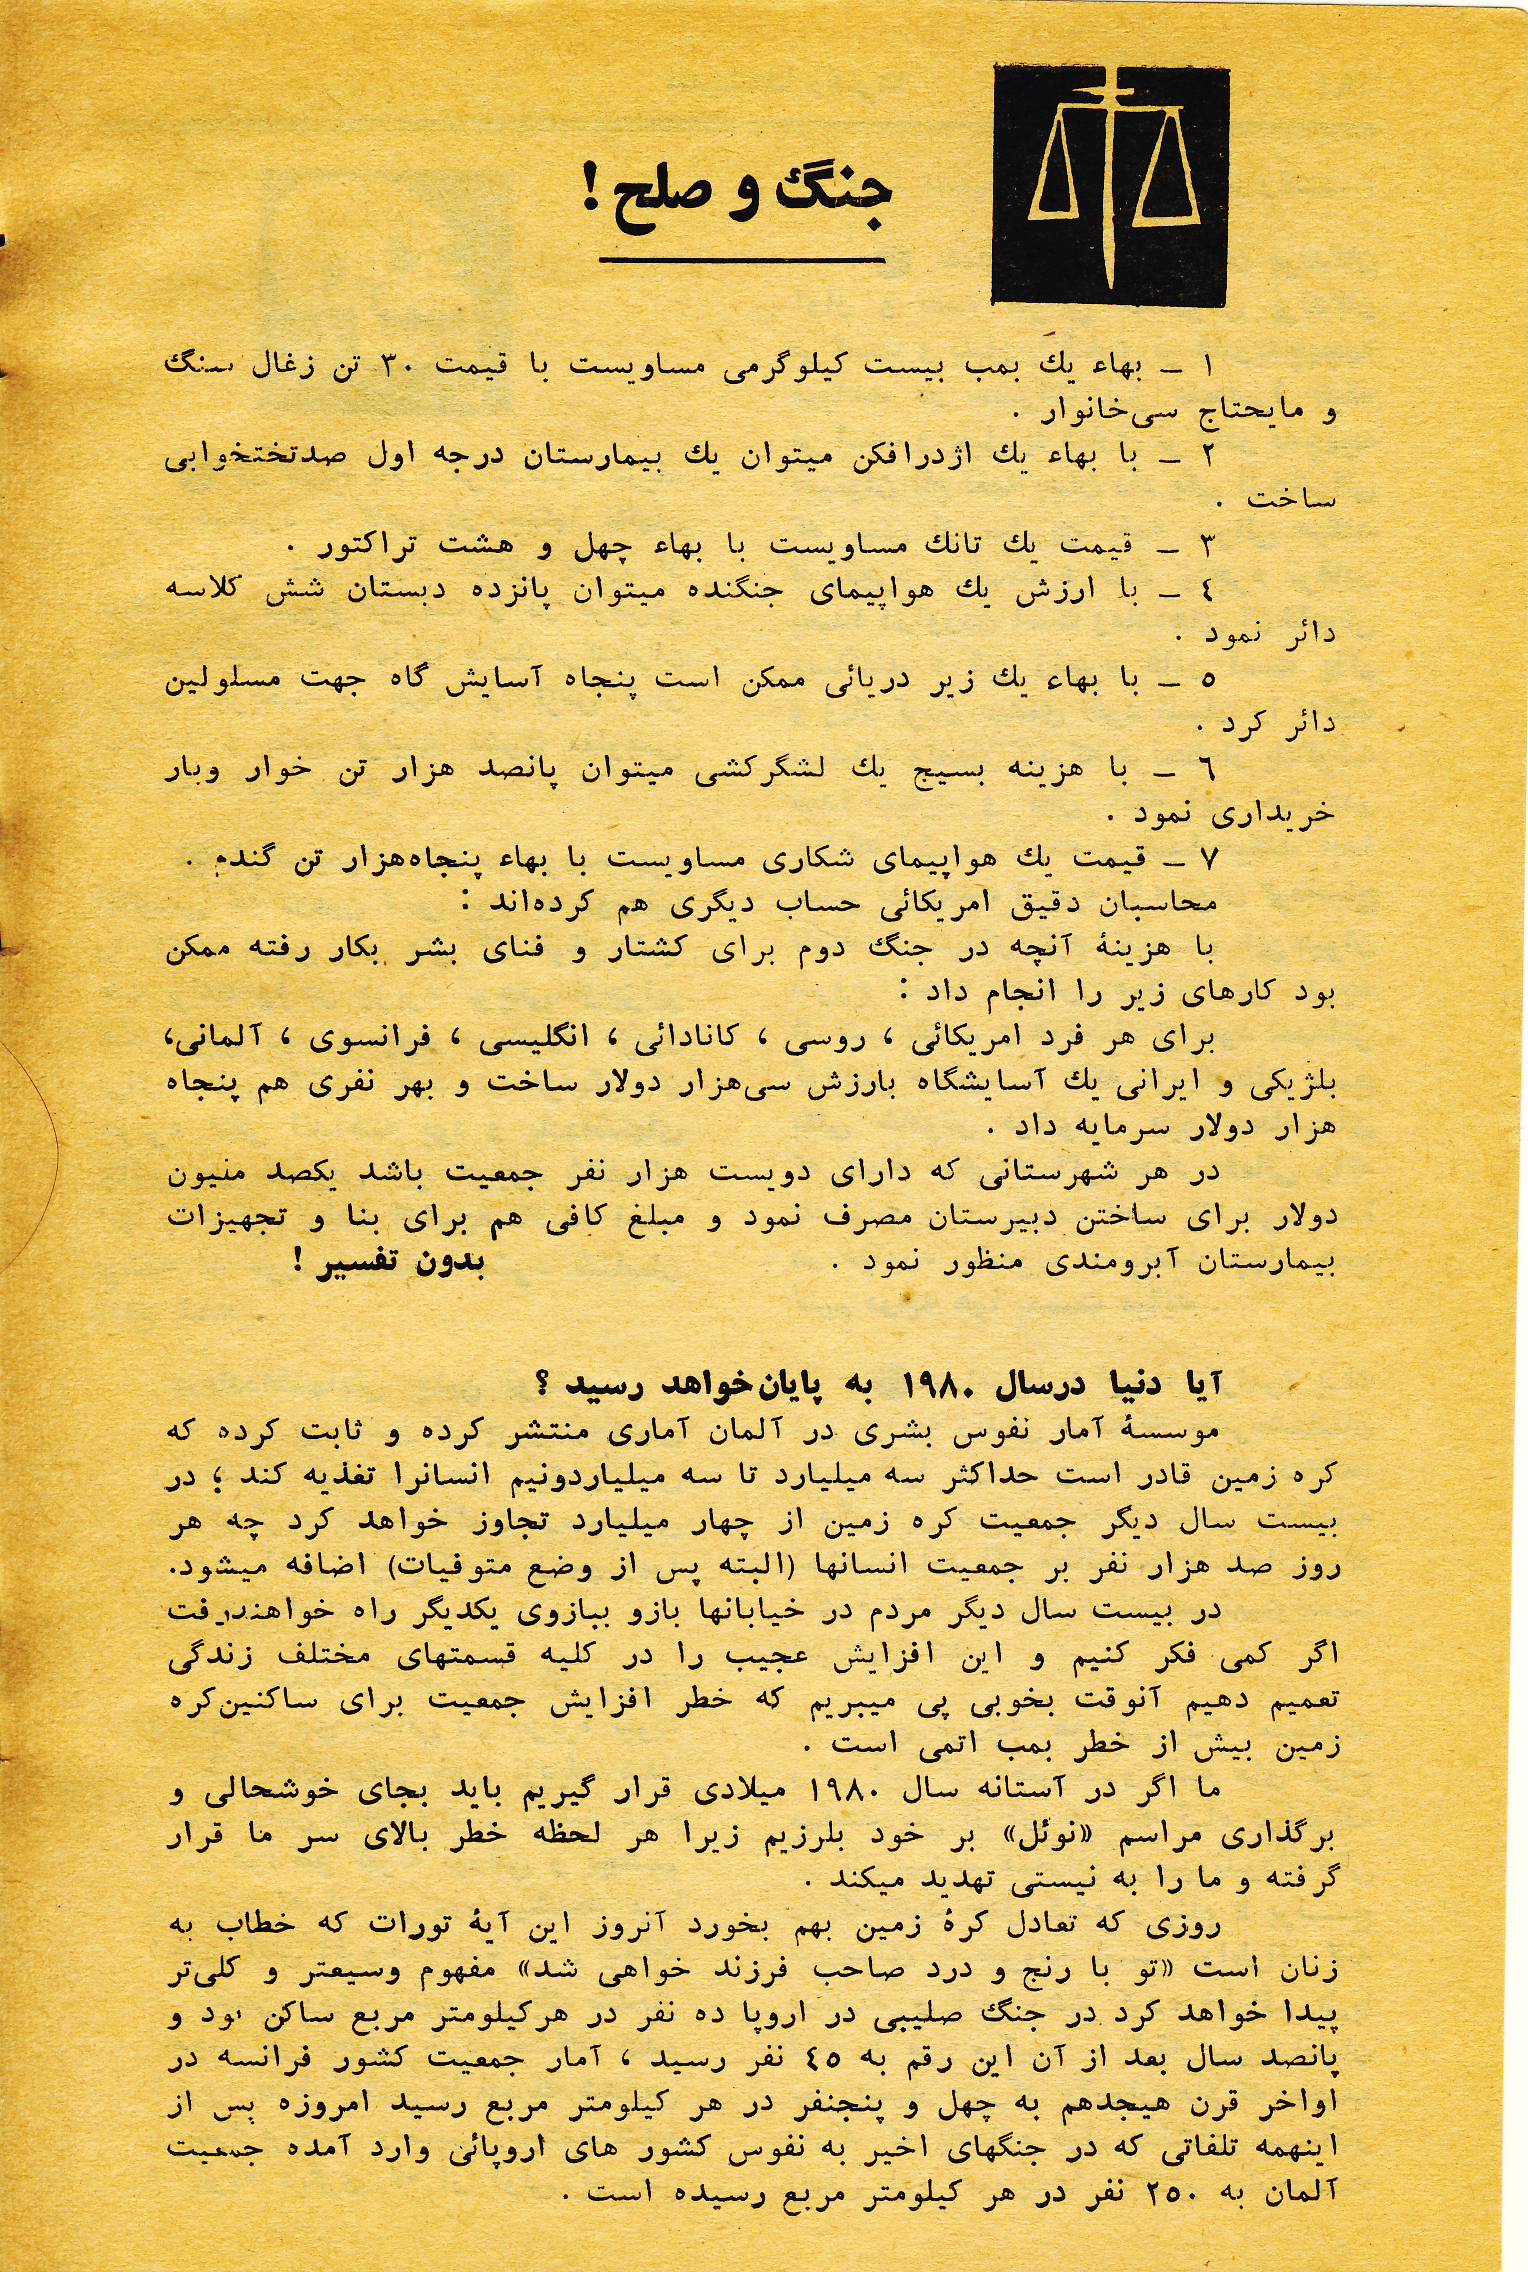 جنگ و صلح !
۱ ـ بهاء یك بمب بیست کیلوگرمی مساویست با قیمت ۳۰ تن زغال سنگ
و مایحتاج سی‌خانوار .
۲ ـ با بهاء یك اژدرافکن میتوان یك بیمارستان درجه اول صدتختخوابی
ساخت .
۳ ـ قیمت یك تانك مساویست با بهاء چهل و هشت تراکتور .
٤ ـ با ارزش یك هواپیمای جنگنده میتوان پانزده دبستان شش کلاسه
دائر نمود .
٥ ـ با بهاء یك زیر دریائی ممکن است پنجاه آسایش گاه جهت مسلولین
دائر کرد .
٦ ـ با هزینه بسیج یك لشگرکشی میتوان پانصد هزار تن خوار وبار
خریداری نمود .
۷ ـ قیمت یك هواپیمای شکاری مساویست با بهاء پنجاه‌هزار تن گندم .
محاسبان دقیق امریکائی حساب دیگری هم کرده‌اند :
با هزینهٔ آنچه در جنگ دوم برای کشتار و فنای بشر بکار رفته ممکن
بود کارهای زیر را انجام داد :
برای هر فرد امریکائی ، روسی ، کانادائی ، انگلیسی ، فرانسوی ، آلمانی،
بلژیکی و ایرانی یك آسایشگاه بارزش سی‌هزار دولار ساخت و بهر نفری هم پنجاه
هزار دولار سرمایه داد .
در هر شهرستانی که دارای دویست هزار نفر جمعیت باشد یکصد ملیون
دولار برای ساختن دبیرستان مصرف نمود و مبلغ کافی هم برای بنا و تجهیزات
بیمارستان آبرومندی منظور نمود . بدون تفسیر !
آیا دنیا درسال ۱۹۸۰ به پایان‌خواهد رسید ؟
موسسهٔ آمار نفوس بشری در آلمان آماری منتشر کرده و ثابت کرده که
کره زمین قادر است حداکثر سه میلیارد تا سه میلیاردونیم انسانرا تغذیه کند ؛ در
بیست سال دیگر جمعیت کره زمین از چهار میلیارد تجاوز خواهد کرد چه هر
روز صد هزار نفر بر جمعیت انسانها (البته پس از وضع متوفیات) اضافه میشود.
در بیست سال دیگر مردم در خیابانها بازو ببازوی یکدیگر راه خواهندرفت
اگر کمی فکر کنیم و این افزایش عجیب را در کلیه قسمتهای مختلف زندگی
تعمیم دهیم آنوقت بخوبی پی میبریم که خطر افزایش جمعیت برای ساکنین‌کره
زمین بیش از خطر بمب اتمی است .
ما اگر در آستانه سال ۱۹۸۰ میلادی قرار گیریم باید بجای خوشحالی و
برگذاری مراسم «نوئل» بر خود بلرزیم زیرا هر لحظه خطر بالای سر ما قرار
گرفته و ما را به نیستی تهدید میکند .
روزی که تعادل کرهٔ زمین بهم بخورد آنروز این آیهٔ تورات که خطاب به
زنان است «تو با رنج و درد صاحب فرزند خواهی شد» مفهوم وسیعتر و کلی‌تر
پیدا خواهد کرد در جنگ صلیبی در اروپا ده نفر در هرکیلومتر مربع ساکن بود و
پانصد سال بعد از آن این رقم به ٤٥ نفر رسید ، آمار جمعیت کشور فرانسه در
اواخر قرن هیجدهم به چهل و پنجنفر در هر کیلومتر مربع رسید امروزه پس از
اینهمه تلفاتی که در جنگهای اخیر به نفوس کشور های اروپائی وارد آمده جمعیت
آلمان به ۲٥۰ نفر در هر کیلومتر مربع رسیده است .